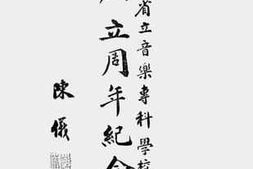 省立音樂專科學校
立周年紀念
陳儀